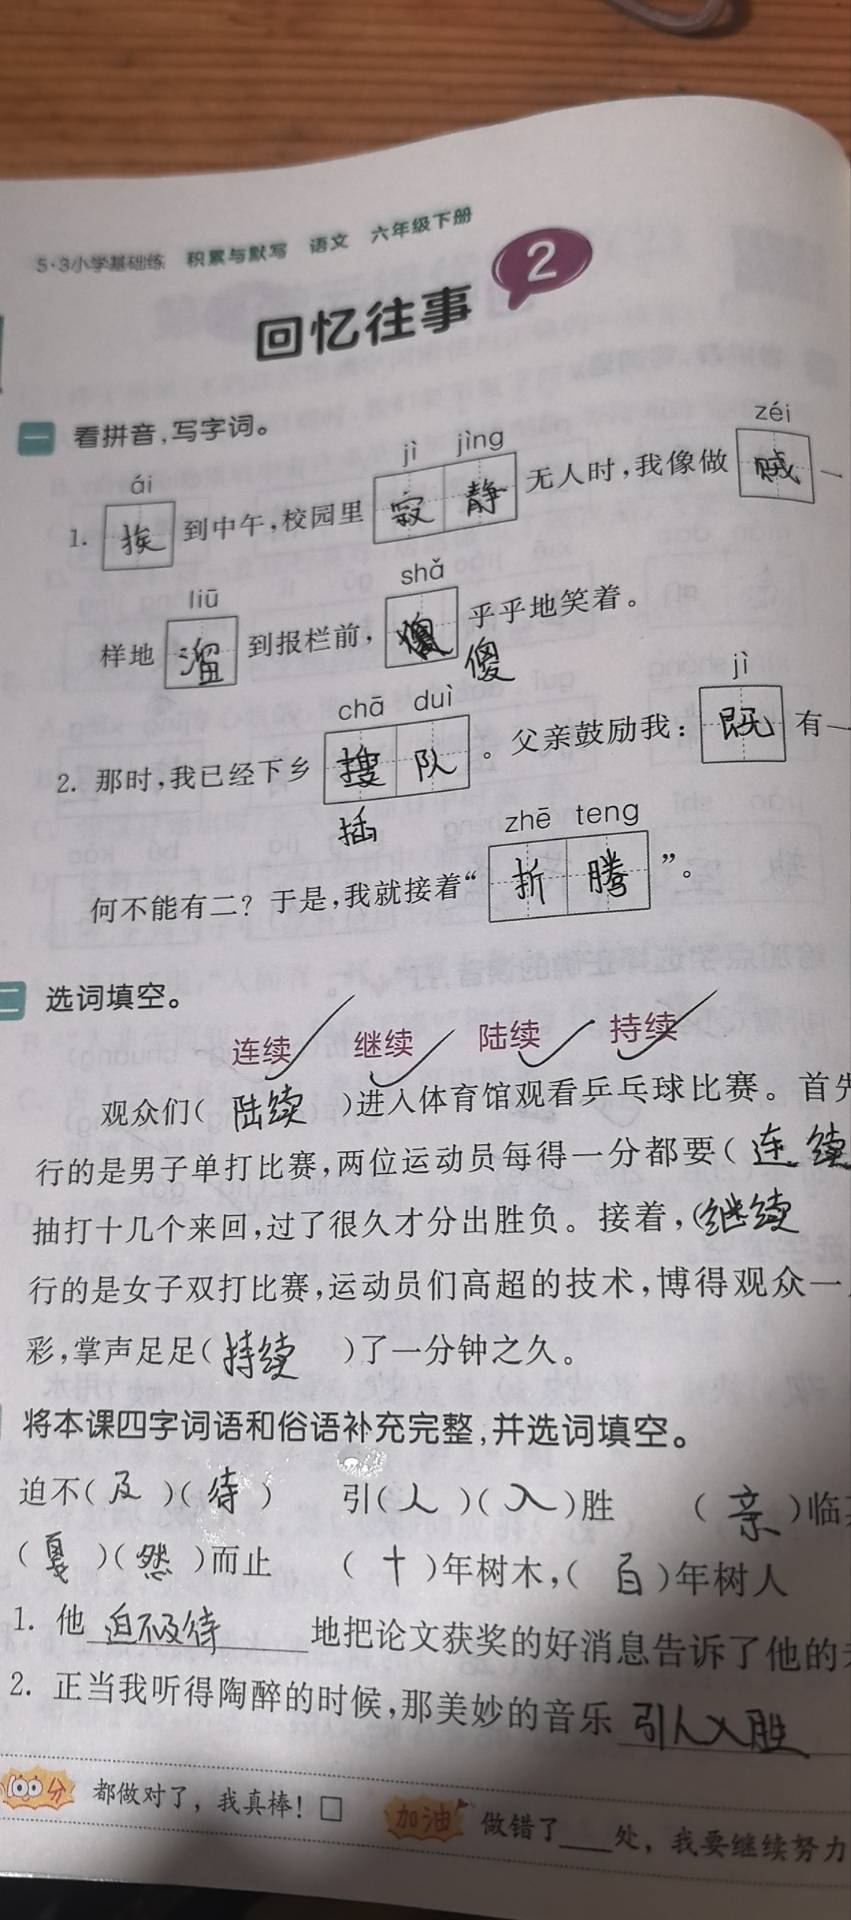 5·3小学基础练 积累与默写 语文 六年级下册
回忆往事 2
一 看拼音,写字词。
zéi
ái jì jìng
1. 挨 到中午,校园里 寂 静 无人时,我像做 贼 一
liū shǎ
样地 溜 到报栏前, 傻 乎乎地笑着。
傻
chā duì jì
2. 那时,我已经下乡 搜 队 。父亲鼓励我: 既 有一
插
zhē teng
何不能有二?于是,我就接着“ 折 腾 ”。
二 选词填空。
连续 继续 陆续 持续
观众们( 陆续 )进入体育馆观看乒乓球比赛。首先
行的是男子单打比赛,两位运动员每得一分都要( 连续
抽打十几个来回,过了很久才分出胜负。接着,( 继续
行的是女子双打比赛,运动员们高超的技术,博得观众一
彩,掌声足足( 持续 )了一分钟之久。
将本课四字词语和俗语补充完整,并选词填空。
迫不( 及 )( 待 ) 引( 人 )( 入 )胜 ( 亲 )临
( 戛 )( 然 )而止 ( 十 )年树木,( 百 )年树人
1. 他 迫不及待 地把论文获奖的好消息告诉了他的
2. 正当我听得陶醉的时候,那美妙的音乐 引人入胜
100分 都做对了,我真棒!□ 加油 做错了___处,我要继续努力